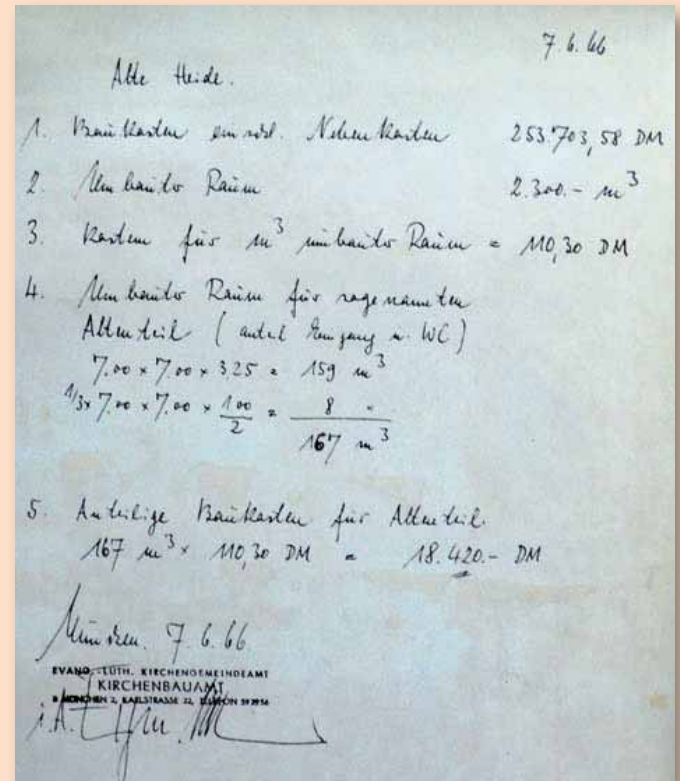 7.6.66
Alte Heide.
1. Baukosten einschl. Nebenkosten 253.703,58 DM
2. Umbauter Raum 2.300.- m³
3. Kosten für m³ umbauter Raum = 110,30 DM
4. Umbauter Raum für sogenannten
Altenteil (anteil Eingang u. WC)
7.00 x 7.00 x 3.25 = 159 m³
1/3 x 7.00 x 7.00 x 1.00/2 = 8 "
167 m³
5. Anteilige Baukosten für Altenteil.
167 m³ x 110,30 DM = 18.420.- DM
München. 7.6.66
EVANG.-LUTH. KIRCHENGEMEINDEAMT
KIRCHENBAUAMT
8 MÜNCHEN 2, KARLSTRASSE 22, TELEFON
i.A.